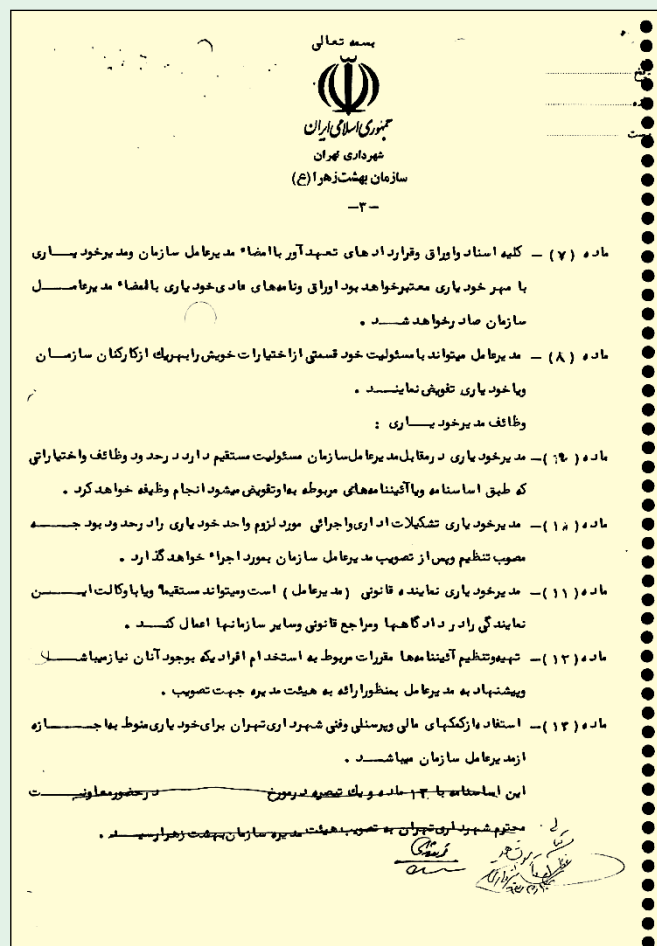 بسمه تعالی
جمهوری اسلامی ایران
شهرداری تهران
سازمان بهشت‌زهرا (ع)
-۳-
ماده (۷) – کلیه اسناد واوراق وقرارداد های تعهدآور باامضاء مدیرعامل سازمان ومدیرخود یـــاری
با مهر خود یاری معتبرخواهد بود اوراق ونامه‌های عادی‌خود یاری باامضاء مدیرعامــل
سازمان صادرخواهد شـــد .
ماده (۸) – مدیرعامل میتواند بامسئولیت خود قسمتی ازاختیارات خویش رابهریك ازکارکنان سازمــان
ویاخود یاری تفویض نماینــد .
وظائف مدیرخود یـــاری :
ماده (۹)– مدیرخود یاری درمقابل مدیرعامل سازمان مسئولیت مستقیم دارد درحدود وظائف واختیاراتی
که طبق اساسنامه ویاآئیننامه‌های مربوطه به‌اوتفویض میشود انجام وظیفه خواهد کرد .
ماده (۱۰)– مدیرخود یاری تشکیلات اداری‌واجرائی مورد لزوم واحد خود یاری راد رحدود بود جـــه
مصوب تنظیم وپس از تصویب مدیرعامل سازمان بمورد اجراء خواهد گذارد .
ماده (۱۱)– مدیرخود یاری نماینده قانونی (مدیرعامل) است ومیتواند مستقیما" ویاباوکالت ایـــن
نمایندگی راد ر دادگاهها ومراجع قانونی وسایر سازمانها اعمال کنـــد .
ماده (۱۲)– تهیه‌وتنظیم آئیننامه‌ها مقررات مربوط به استخدام افراد یکه بوجود آنان نیازمیباشـــد
وپیشنهاد به مدیرعامل بمنظورارائه به هیئت مدیره جهت تصویب .
ماده (۱۳)– استفاده ازکمکهای مالی وپرسنلی وفنی شهرداری‌تهران برای‌خود یاری‌منوط به‌اجـــازه
ازمدیرعامل سازمان میباشـــد .
این اساسنامه با ۱۳ ماده ویك تبصره درمورخ درحضورمعاونیـــت
محترم شهرداری‌تهران به تصویب هیئت مدیره سازمان‌بهشت زهرارسیـــد .